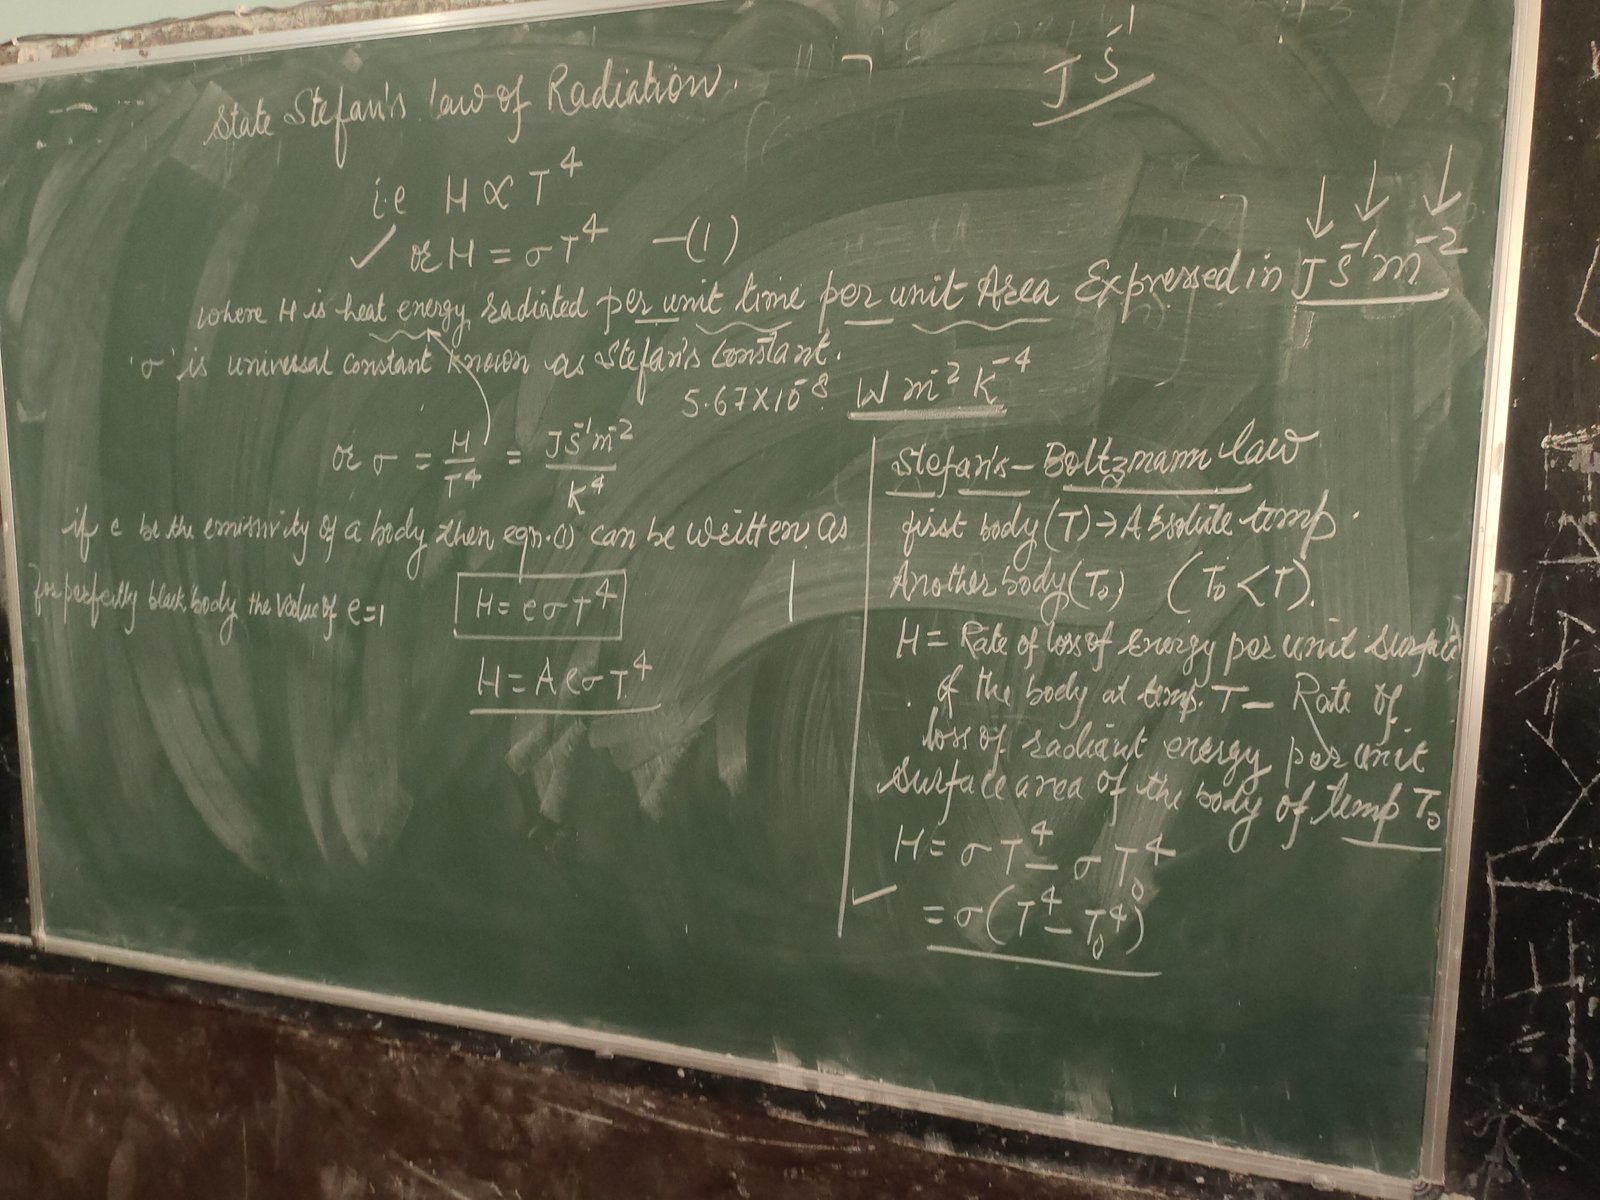 State Stefan's law of Radiation.
J S⁻¹
i.e H ∝ T⁴
or H = σT⁴ —(1)
where H is heat energy radiated per unit time per unit Area Expressed in J S⁻¹ m⁻²
'σ' is universal constant known as Stefan's Constant.
5.67×10⁻⁸ W m⁻² K⁻⁴
or σ = H/T⁴ = J S⁻¹ m⁻²/K⁴
if e be the emissivity of a body then eqn.(1) can be written as
for perfectly black body the value of e=1
H = eσT⁴
H = AeσT⁴
Stefan's – Boltzmann law
first body (T) → Absolute temp.
Another body (T₀) (T₀ < T).
H = Rate of loss of energy per unit surface
of the body at temp. T – Rate of
loss of radiant energy per unit
surface area of the body of temp T₀
H = σT⁴ – σT₀⁴
= σ(T⁴ – T₀⁴)